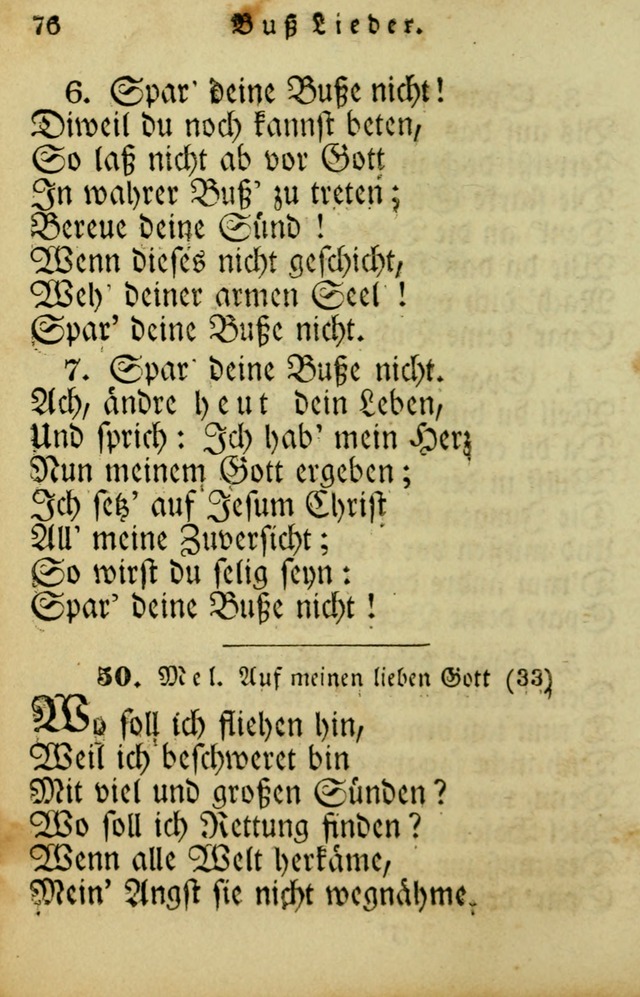 76 Buß Lieder.
6. Spar' deine Buße nicht!
Diweil du noch kannst beten,
So laß nicht ab vor Gott
In wahrer Buß' zu treten;
Bereue deine Sünd !
Wenn dieses nicht geschicht,
Weh' deiner armen Seel !
Spar' deine Buße nicht.
7. Spar' deine Buße nicht.
Ach, ändre heut dein Leben,
Und sprich: Ich hab' mein Herz
Nun meinem Gott ergeben;
Ich setz' auf Jesum Christ
All' meine Zuversicht;
So wirst du selig seyn:
Spar' deine Buße nicht!
50. Mel. Auf meinen lieben Gott (33)
Wo soll ich fliehen hin,
Weil ich beschweret bin
Mit viel und großen Sünden?
Wo soll ich Rettung finden?
Wenn alle Welt herkäme,
Mein' Angst sie nicht wegnähme.